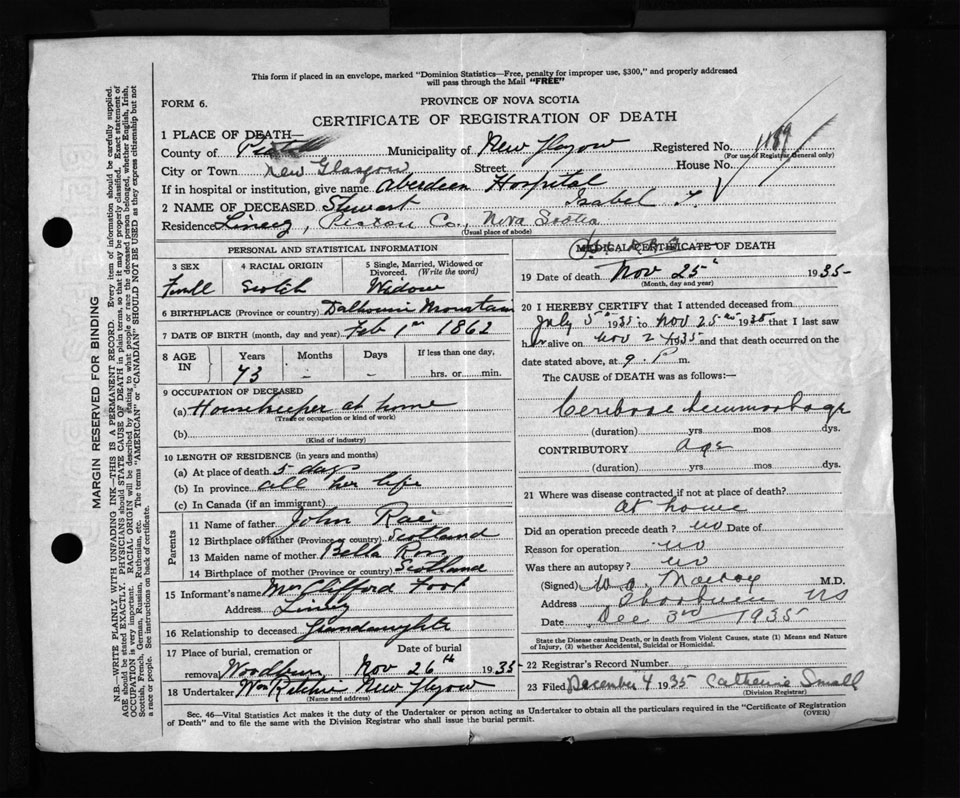 This form if placed in an envelope, marked "Dominion Statistics—Free, penalty for improper use, $300," and properly addressed
will pass through the Mail "FREE"
FORM 6.
PROVINCE OF NOVA SCOTIA
CERTIFICATE OF REGISTRATION OF DEATH
1 PLACE OF DEATH—
County of Pictou Municipality of New Glasgow Registered No. 1189
(For use of Registrar General only)
City or Town New Glasgow Street House No.
If in hospital or institution, give name Aberdeen Hospital
2 NAME OF DECEASED Stewart Isabel
Residence Pictou Co., Nova Scotia
(Usual place of abode)
PERSONAL AND STATISTICAL INFORMATION
3 SEX 4 RACIAL ORIGIN 5 Single, Married, Widowed or
Divorced. (Write the word)
Scotch Widow
6 BIRTHPLACE (Province or country) Dalhousie Mountain
7 DATE OF BIRTH (month, day and year) Feb 1st 1862
8 AGE IN Years Months Days If less than one day,
73 - - hrs. or min.
9 OCCUPATION OF DECEASED
(a) Housekeeper at home
(Trade or occupation or kind of work)
(b)
(Kind of industry)
10 LENGTH OF RESIDENCE (in years and months)
(a) At place of death 5 days
(b) In province all her life
(c) In Canada (if an immigrant)
Parents
11 Name of father John Rae
12 Birthplace of father (Province or country) Scotland
13 Maiden name of mother Bella Ross
14 Birthplace of mother (Province or country) Scotland
15 Informant's name Mrs Clifford Foot
Address
16 Relationship to deceased Grandaughter
17 Place of burial, cremation or Date of burial
removal Woodburn Nov 26th 1935
18 Undertaker Wm Ritchie New Glasgow
(Name and address)
MEDICAL CERTIFICATE OF DEATH
19 Date of death Nov 25 1935
(Month, day and year)
20 I HEREBY CERTIFY that I attended deceased from
July 5 1935 to Nov 25 1935 that I last saw
her alive on Nov 24 1935 and that death occurred on the
date stated above, at 9 P m.
The CAUSE of DEATH was as follows:—
Cerebral hemmorhage
(duration) yrs mos dys.
CONTRIBUTORY age
(duration) yrs. mos. dys.
21 Where was disease contracted if not at place of death?
at home
Did an operation precede death? no Date of
Reason for operation no
Was there an autopsy? no
(Signed) M.D.
Address NS
Date Dec 3rd 1935
State the Disease causing Death, or in death from Violent Causes, state (1) Means and Nature
of Injury, (2) whether Accidental, Suicidal or Homicidal.
22 Registrar's Record Number
23 Filed December 4 1935 Catherine Small
(Division Registrar)
Sec. 46—Vital Statistics Act makes it the duty of the Undertaker or person acting as Undertaker to obtain all the particulars required in the "Certificate of Registration
of Death" and to file the same with the Division Registrar who shall issue the burial permit.
(OVER)
MARGIN RESERVED FOR BINDING
N.B.—WRITE PLAINLY WITH UNFADING INK—THIS IS A PERMANENT RECORD. Every item of information should be carefully supplied.
AGE should be stated EXACTLY. PHYSICIANS should STATE CAUSE OF DEATH in plain terms, so that it may be properly classified. Exact statement of
OCCUPATION is very important. RACIAL ORIGIN will be described by stating to what people or race the deceased person belonged, whether English, Irish,
Scottish, French, German, Russian, Ruthenian, etc. The terms "AMERICAN" or "CANADIAN" SHOULD NOT BE USED as they express citizenship but not
a race or people. See instructions on back of certificate.